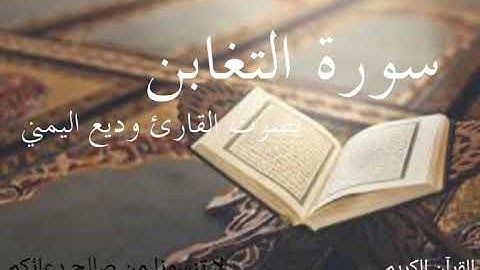 سورة التغابن
بصوت القارئ وديع اليمني
القرآن الكريم
لا تنسونا من صالح دعائكم